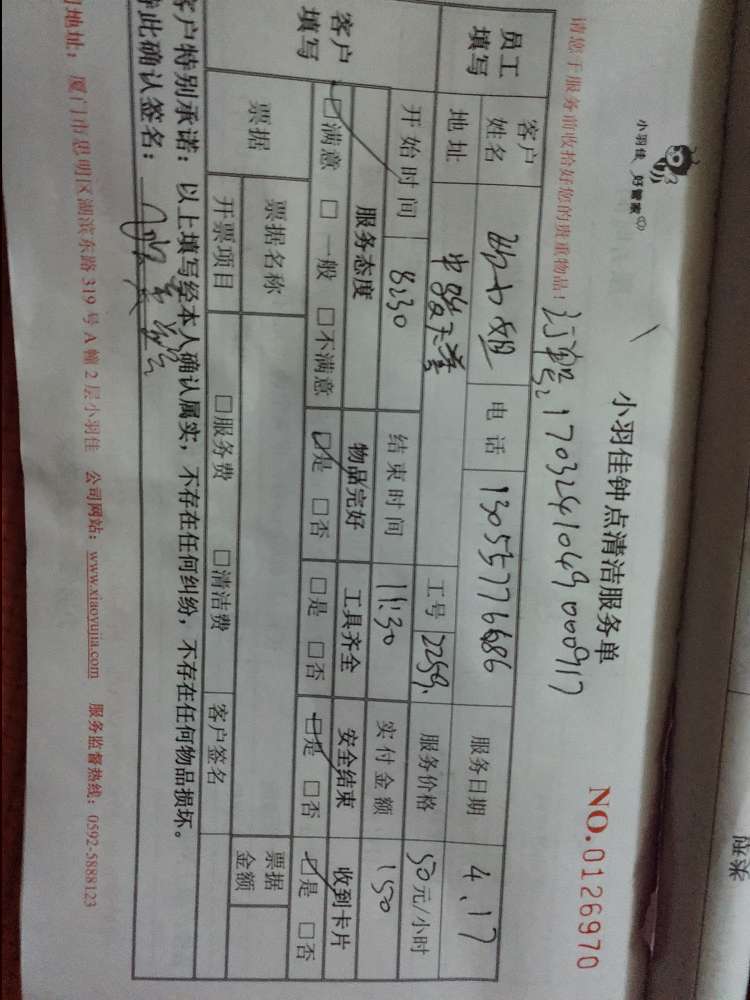 小羽佳 好管家
小羽佳钟点清洁服务单
NO.0126970
请您于服务前收拾好您的贵重物品!
员工填写 客户姓名 电话 13055776686 服务日期 4.17
地址 工号 2259. 服务价格 50元/小时
客户填写 开始时间 8:30 结束时间 11:30 实付金额 150
服务态度 物品完好 工具齐全 安全结束 收到卡片
☑满意 □一般 □不满意 ☑是 □否 □是 □否 ☑是 □否 ☑是 □否
票据 票据名称 □服务费 □清洁费 票据金额
开票项目 客户签名
客户特别承诺：以上填写经本人确认属实，不存在任何纠纷，不存在任何物品损坏。
特此确认签名：
司地址：厦门市思明区湖滨东路319号A幢2层小羽佳 公司网站：www.xiaoyujia.com 服务监督热线：0592-5888123